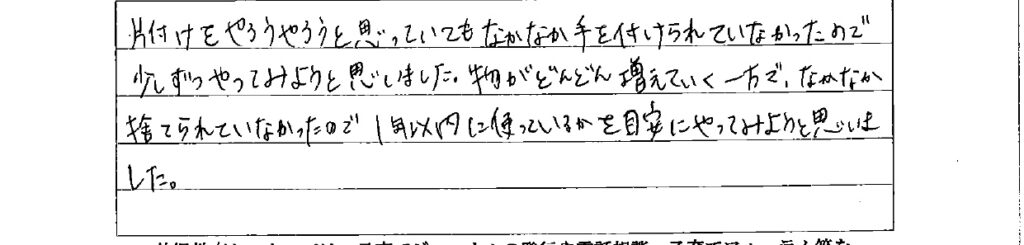 片付けをやろうやろうと思っていてもなかなか手を付けられていなかったので
少しずつやってみようと思いました。物がどんどん増えていく一方で、なかなか
捨てられていなかったので1年以内に使っているかを目安にやってみようと思いま
した。